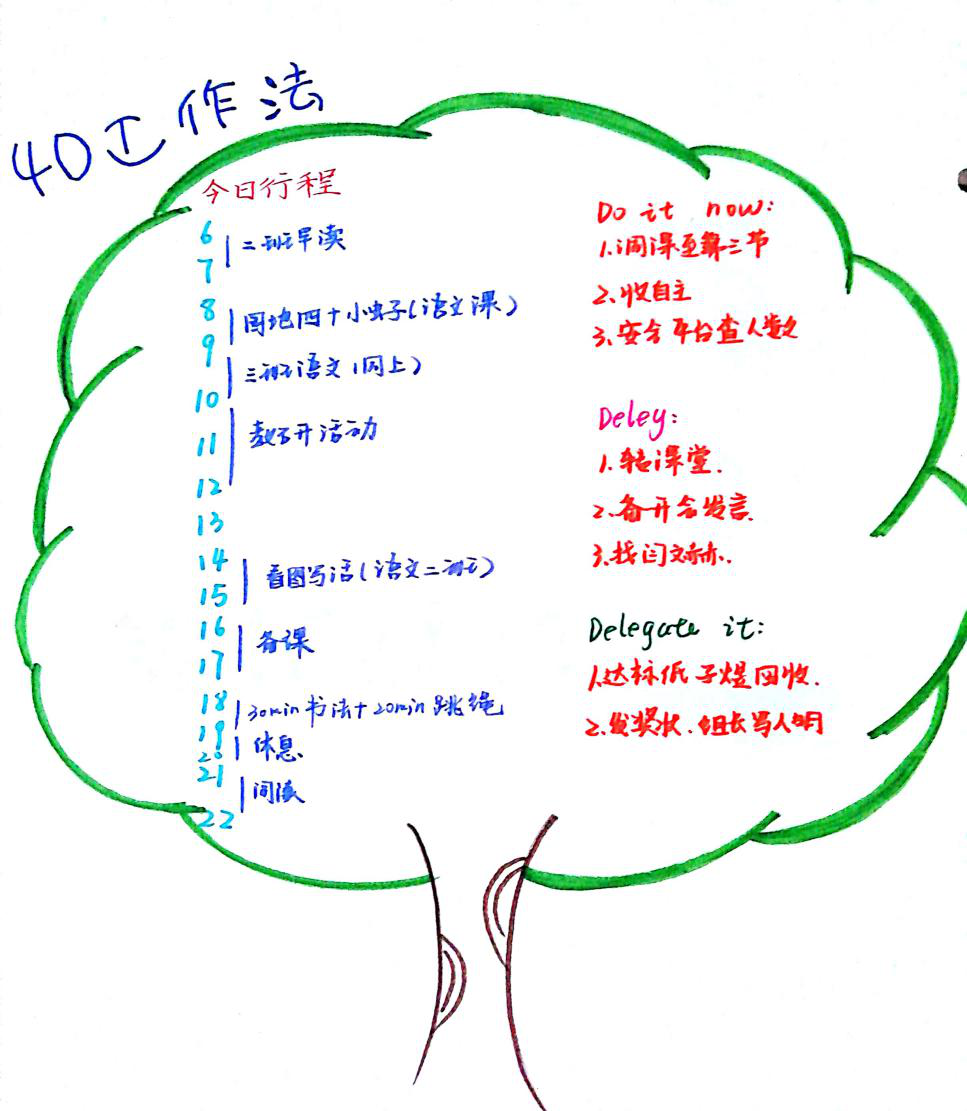 4D工作法
今日行程
6
二班早读
7
8
园地四+小虫子(语文课)
9
三班语文(网上)
10
11
教研活动
12
13
14
看图写话(语文二班)
15
16
备课
17
18
30min书法+20min跳绳
19
休息
20
21
阅读
22
Do it now:
1.调课至第三节
2.收自主
3.安全平台查人数
Deley:
1.轻课堂.
2.备开会发言.
3.找闫文赫.
Delegate it:
1.达标纸子煜回收.
2.发奖状.组长写人名